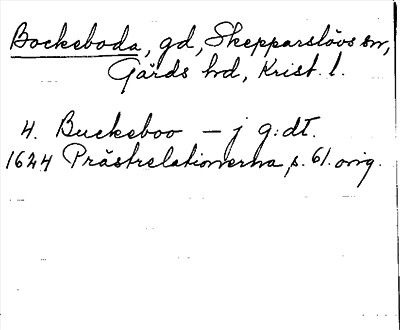 Bockeboda, gd, Skepparslövs sn,
Gärds hd, Krist. l.
4. Buckeboo – j g:dt.
1624 Prästrelationerna, s. 61. orig.